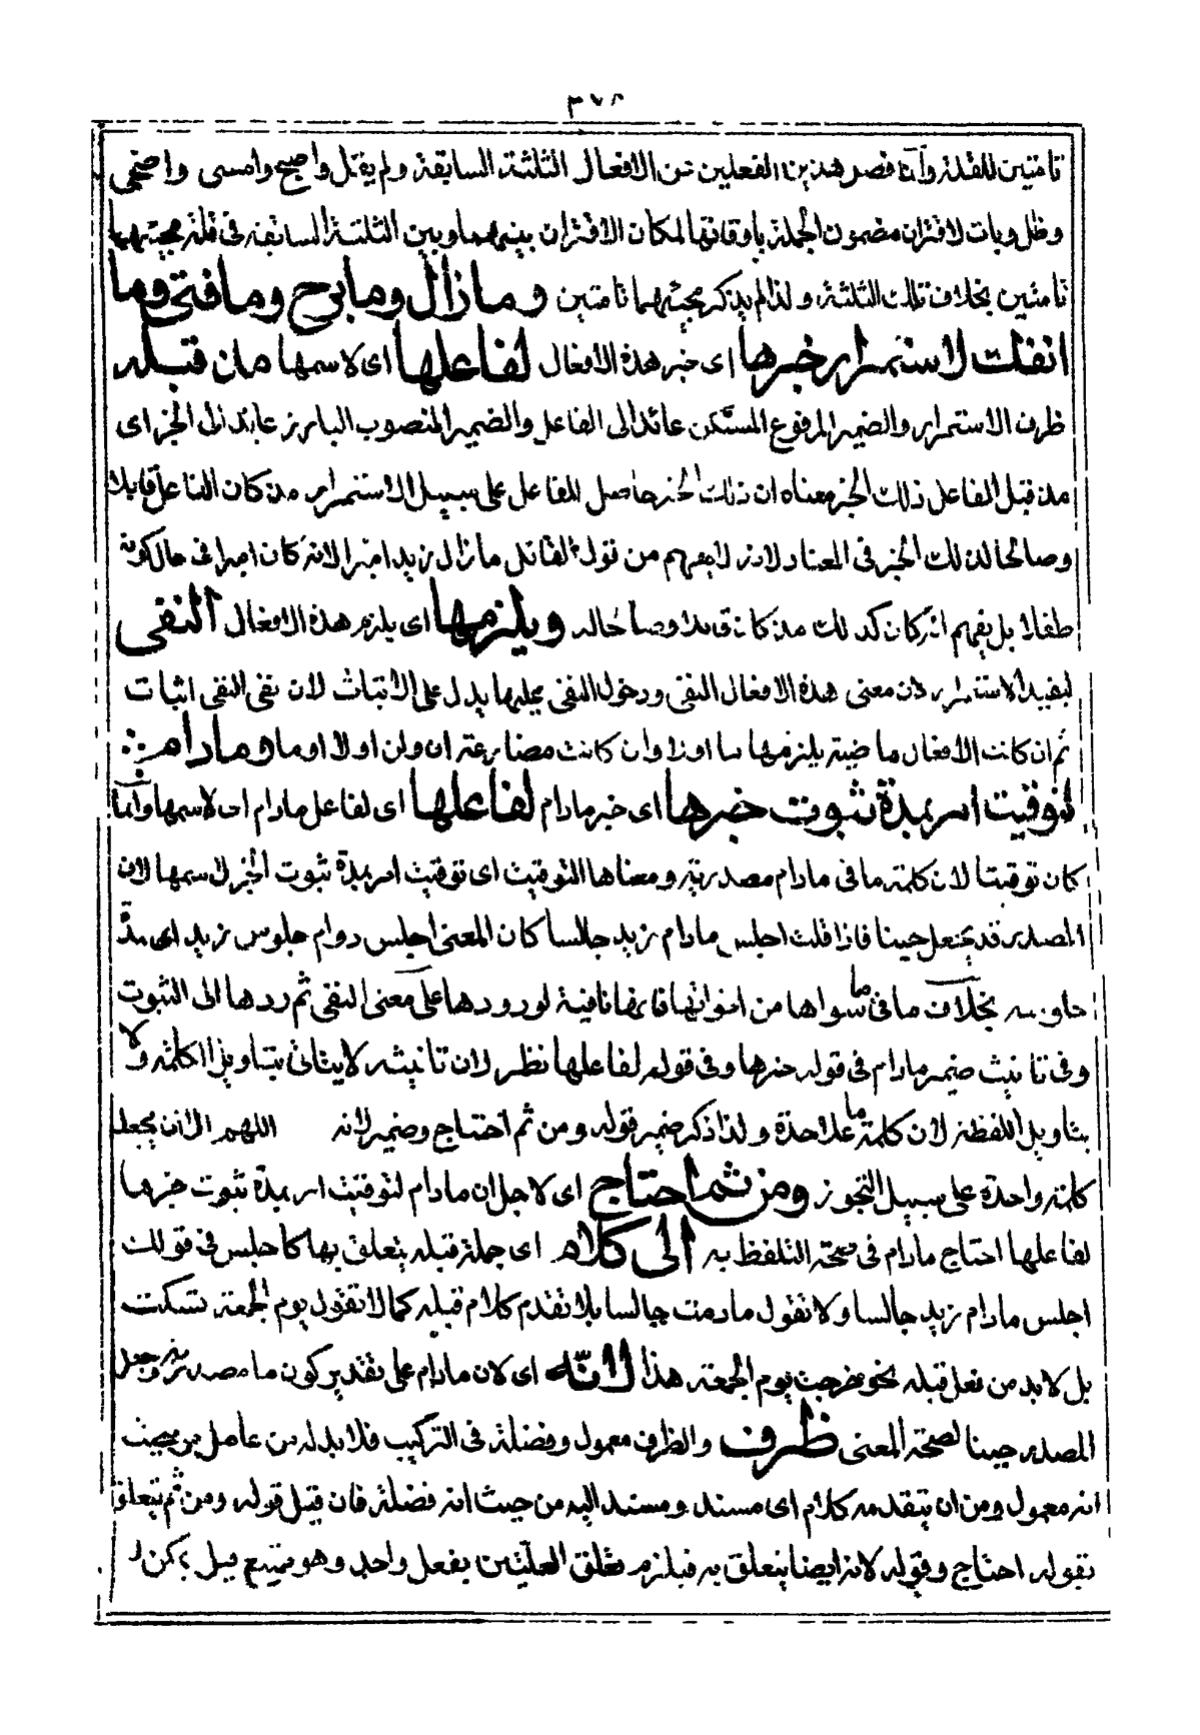 ٣٧٨
تامتين للقلة وانما فصل هذين الفعلين عن الافعال الثلثة السابقة ولم يقل واصبح وامسى واضحى
وظل وبات لاقتران مضمون الجملة باوقاتها لمكان الاقتران بينهما وبين الثلثة السابقة فى قلة مجيئهما
تامتين بخلاف تلك الثلثة ولذا لم يذكر مجيئهما تامتين وما زال وما برح وما فتئ وما
انفك لاستمرار خبرها اى خبر هذه الافعال لفاعلها اى لاسمها مذ قبله
ظرف الاستمرار والضمير المرفوع المستكن عائد الى الفاعل والضمير المنصوب البارز عائد الى الخبر اى
مذ قبل الفاعل ذلك الخبر معناه ان ذلك الخبر حاصل للفاعل على سبيل الاستمرار مذ كان الفاعل قابلا
وصالحا لذلك الخبر فى المعتاد لانه لا يفهم من قول القائل ما زال زيد اميرا لانه كان اميرا فى حال كونه
طفلا بل يفهم انه كان كذلك مذ كان قابلا وصالحا له ويلزمها اى يلزم هذه الافعال النفى
ليفيد الاستمرار لان معنى هذه الافعال النفى ودخول النفى عليها يدل على الاثبات لان نفى النفى اثبات
ثم ان كانت الافعال ماضية يلزمها ما او لا وان كانت مضارعة ان ولن او لا او ما وما دام
لتوقيت امر بمدة ثبوت خبرها اى خبر ما دام لفاعلها اى لفاعل ما دام اى لاسمها وانما
كان توقيتا لان كلمة ما فى ما دام مصدرية ومعناها التوقيت اى توقيت امر بمدة ثبوت الخبر لاسمها لان
المصدر قد يجعل حينا فاذا قلت اجلس ما دام زيد جالسا كان المعنى اجلس دوام جلوس زيد اى مدة
جلوسه بخلاف ما فى ما سواها من اخواتها فانها نافية لورودها على معنى النفى ثم ردها الى الثبوت
وفى تانيث ضمير ما دام فى قوله خبرها وفى قوله لفاعلها نظر لان تانيثه لا يتاتى بتاويل الكلمة ولا
بتاويل اللفظة لان كلمة ما علاحدة ولذا ذكر ضمير قوله ومن ثم احتاج وضمير لانه اللهم الا ان يجعل
كلمة واحدة على سبيل التجوز ومن ثم احتاج اى لاجل ان ما دام لتوقيت امر بمدة ثبوت خبرها
لفاعلها احتاج ما دام فى صحة التلفظ به الى كلام اى جملة قبله يتعلق بها كاجلس فى قولك
اجلس ما دام زيد جالسا ولا تقول ما دمت جالسا بلا تقدم كلام قبله كما لا تقول يوم الجمعة تسكت
بل لابد من فعل قبله نحو خرجت يوم الجمعة هذا لانه اى لان ما دام على تقدير كون ما مصدرية وجعل
المصدر حينا لصحة المعنى ظرف والظرف معمول وفضلة فى التركيب فلا بد له من عامل من حيث
انه معمول ومن ان يتقدمه كلام اى مسند ومسند اليه من حيث انه فضلة فان قيل قوله ومن ثم تتعلق
بقوله احتاج وقوله لانه ايضا يتعلق به فيلزم تعلق العلتين بفعل واحد وهو ممتنع قيل يمكن